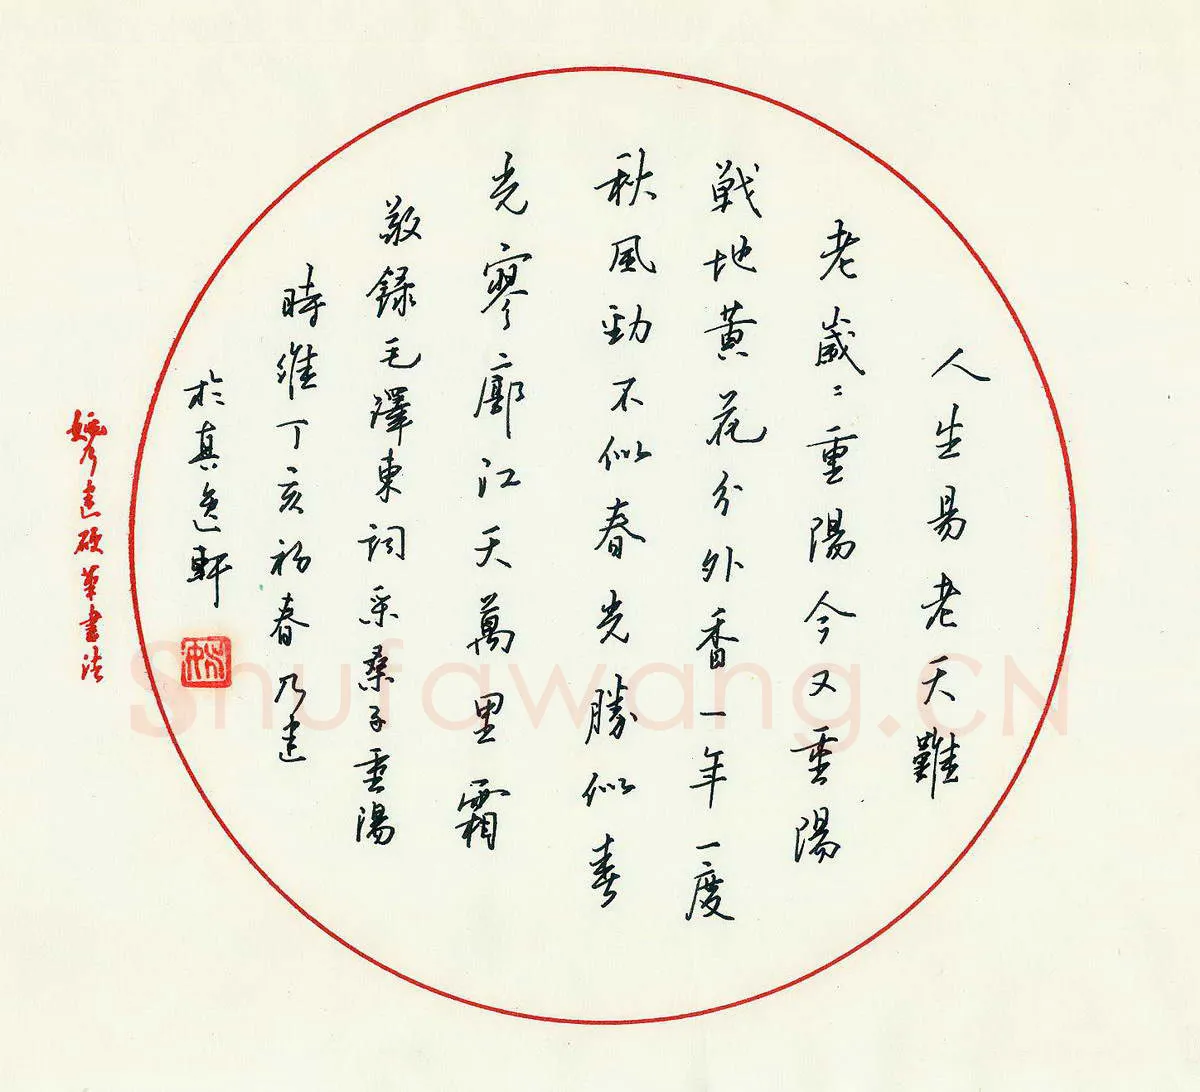 人生易老天難
老歲〻重陽今又重陽
戦地黄花分外香一年一度
秋風勁不似春光勝似春
光寥廓江天萬里霜
敬録毛澤東詞采桑子重陽
時維丁亥初春乃建
於真逸軒
乃建硬筆書法
Shufawang.CN